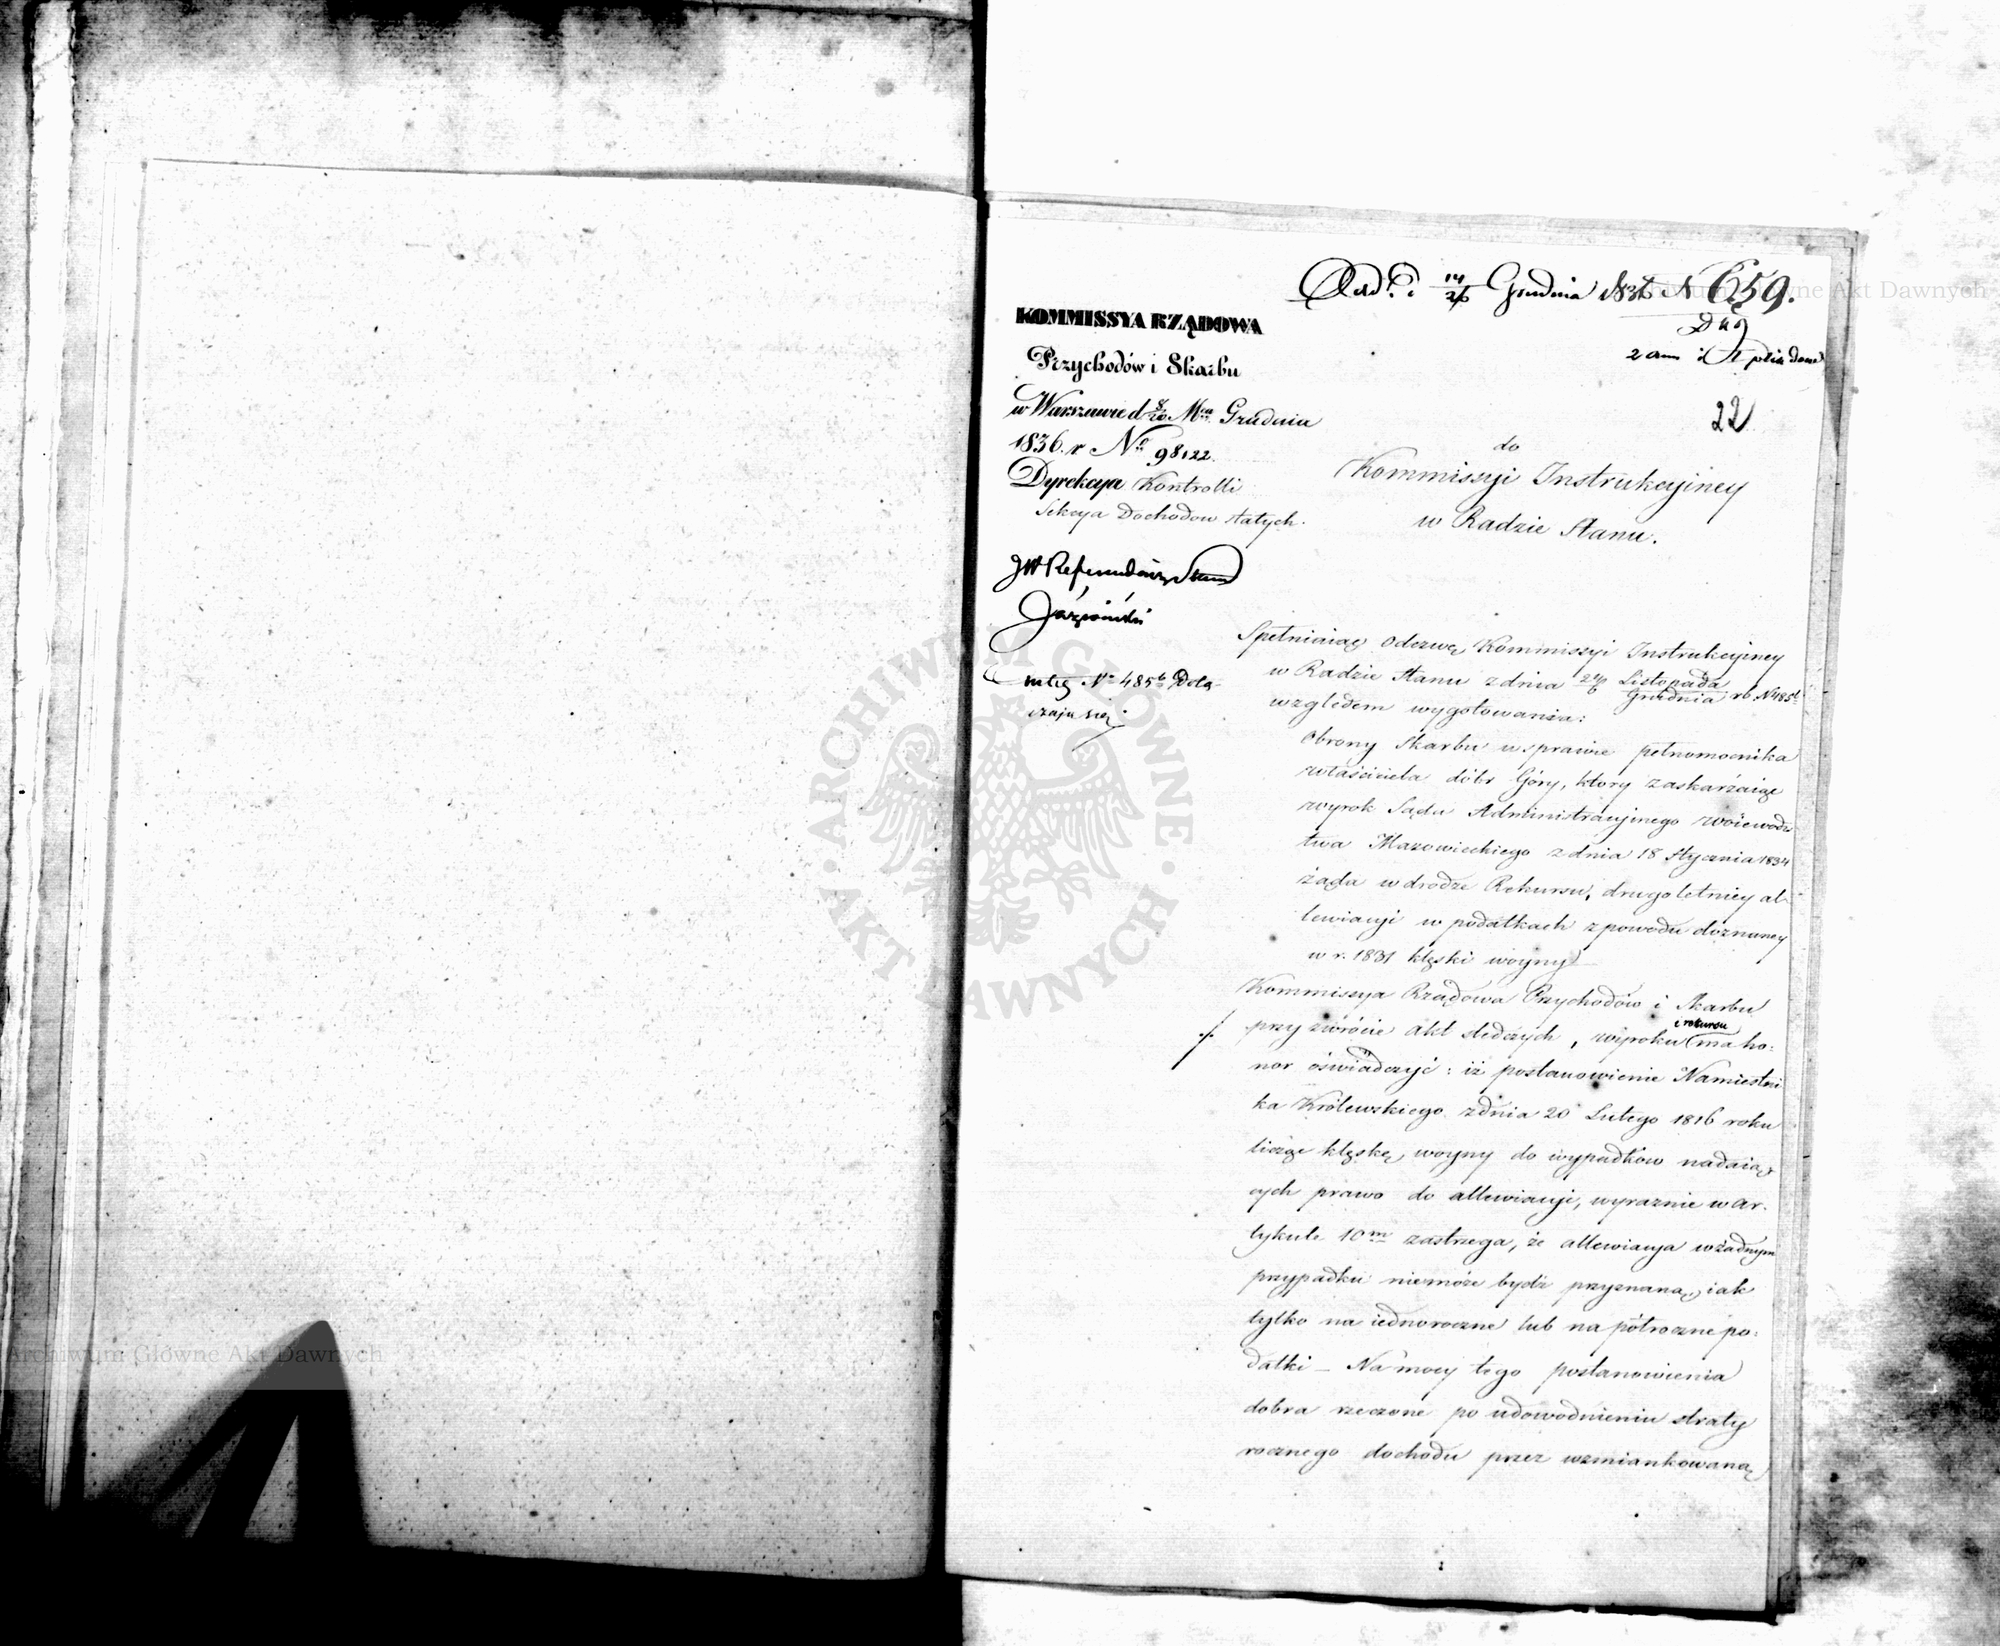 14/26 Grudnia 1836 N 659.
22
KOMMISSYA RZĄDOWA
Przychodów i Skarbu
w Warszawie d 8/20 Mca Grudnia
1836. r No 98122.
Dyrekcya Kontrolli
Sekcya Dochodow stałych.
do
Kommissyi Instrukcyiney
w Radzie Stanu.
JW Referendarz Stanu
Jaźwiński
N 485 Dołą
cza się
Spełniaiąc odezwę Kommissyi Instrukcyiney
w Radzie Stanu z dnia 24/6 Listopada/Grudnia rb N 485
względem wygotowania:
Obrony Skarbu w sprawie pełnomocnika
właściciela dóbr Góry, ktory zaskarżaiąc
wyrok Sądu Administracyinego Woiewodz
twa Mazowieckiego z dnia 18 Stycznia 1834
żąda w drodze Rekursu, drugoletniey al-
lewiacyi w podatkach z powodu doznaney
w r. 1831 klęski woyny
Kommissya Rządowa Przychodów i Skarbu
przy zwrócie akt śledczych, wyroku i rekursu ma ho-
nor oświadczyć: iż postanowienie Namiestni
ka Królewskiego z dnia 20 Lutego 1816 roku
licząc klęskę woyny do wypadków nadaią
cych prawo do allewiacyi, wyraznie w ar-
tykule 10m zastrzega, że allewiacya w żadnym
przypadku niemoże bydź przyznaną, iak
tylko na iednoroczne lub na półroczne po-
datki – Na mocy tego postanowienia
dobra rzeczone po udowodnieniu straty
rocznego dochodu przez wzmiankowaną
ARCHIWUM GŁÓWNE AKT DAWNYCH
Archiwum Główne Akt Dawnych
Archiwum Główne Akt Dawnych